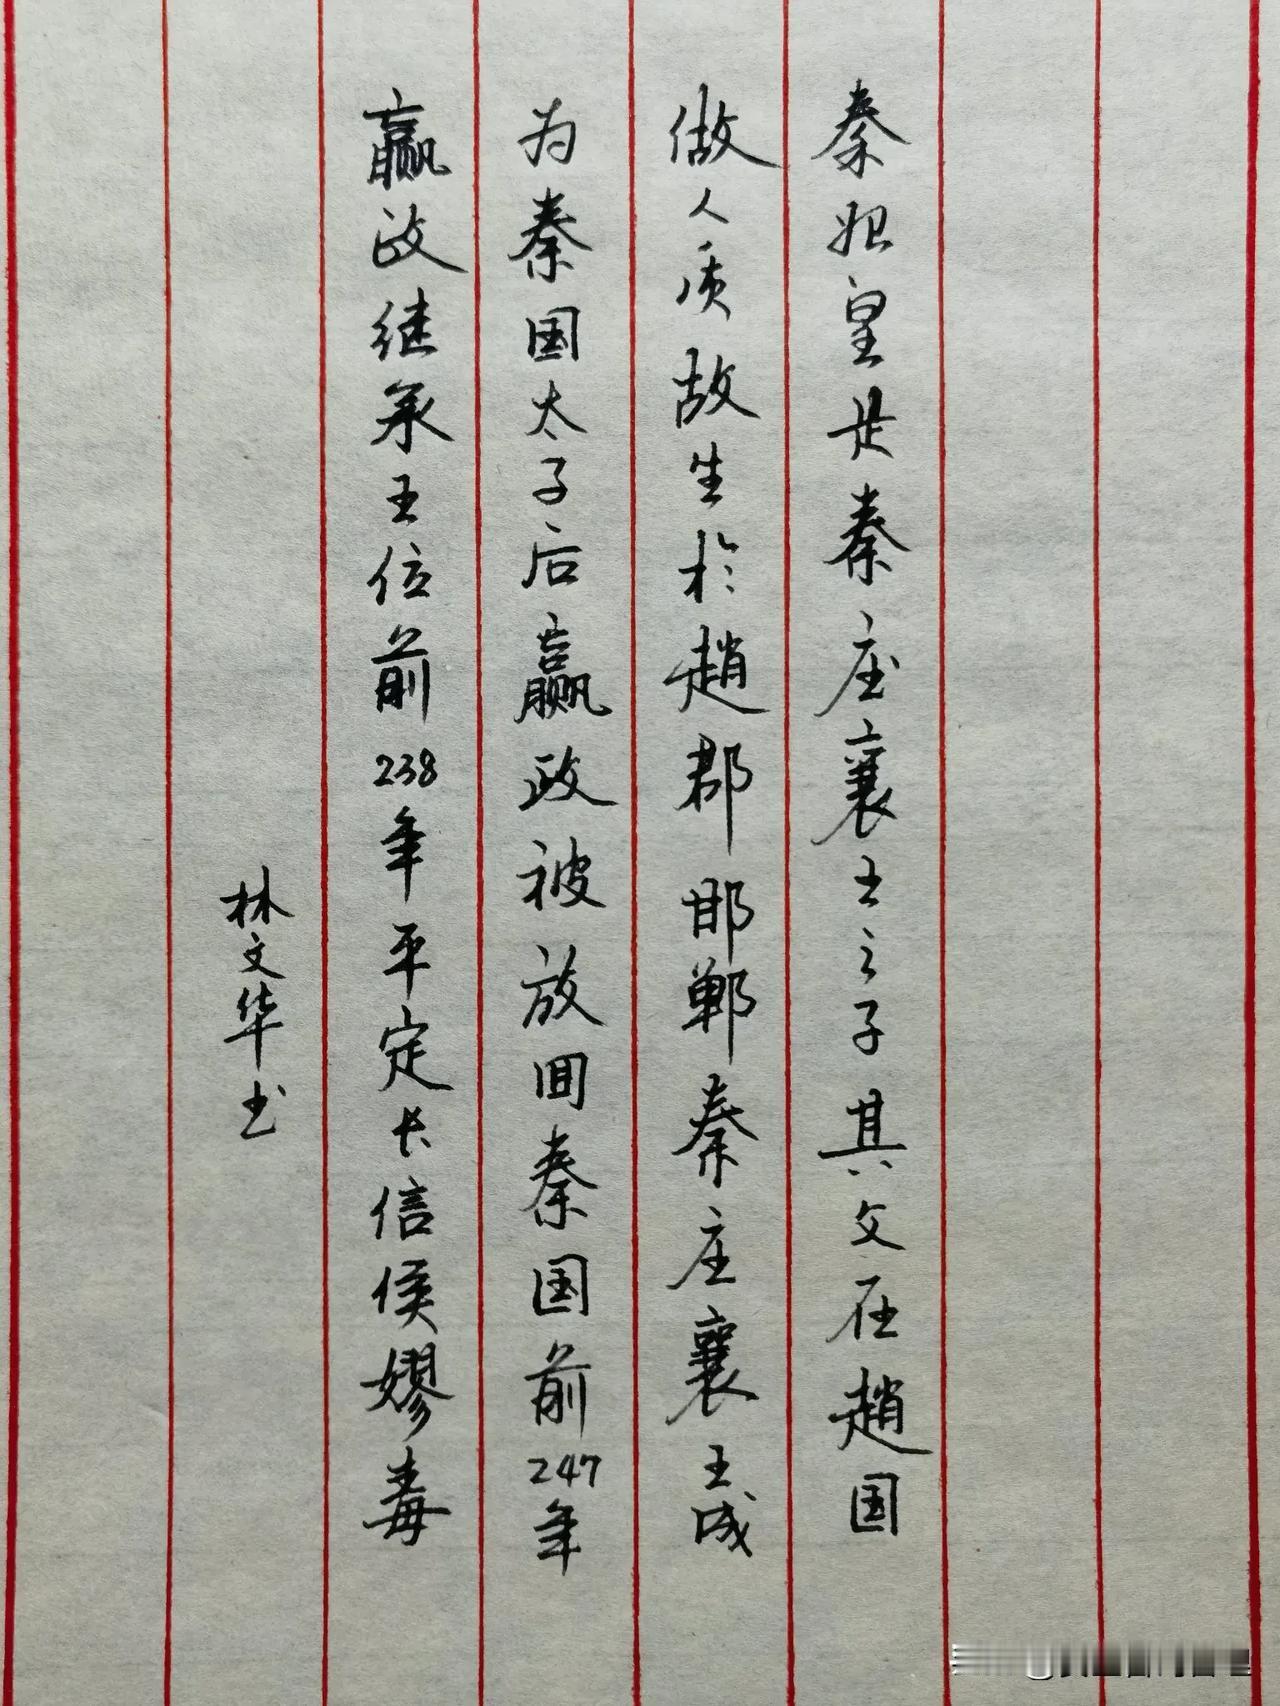 秦始皇是秦庄襄王之子其父在趙国
做人质故生於趙郡邯郸秦庄襄王成
为秦国太子后赢政被放回秦国前247年
赢政继承王位前238年平定长信侯嫪毐
林文华书